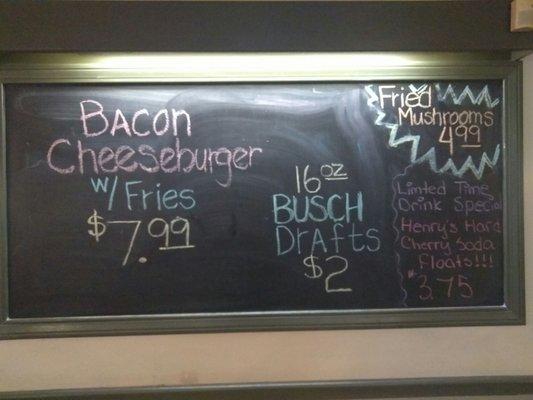 Bacon
Cheeseburger
w/ Fries
$7.99
16oz
BUSCH
Drafts
$2
Fried
Mushrooms
4.99
Limted Time
Drink Special
Henry's Hard
Cherry Soda
Floats!!!
$3.75